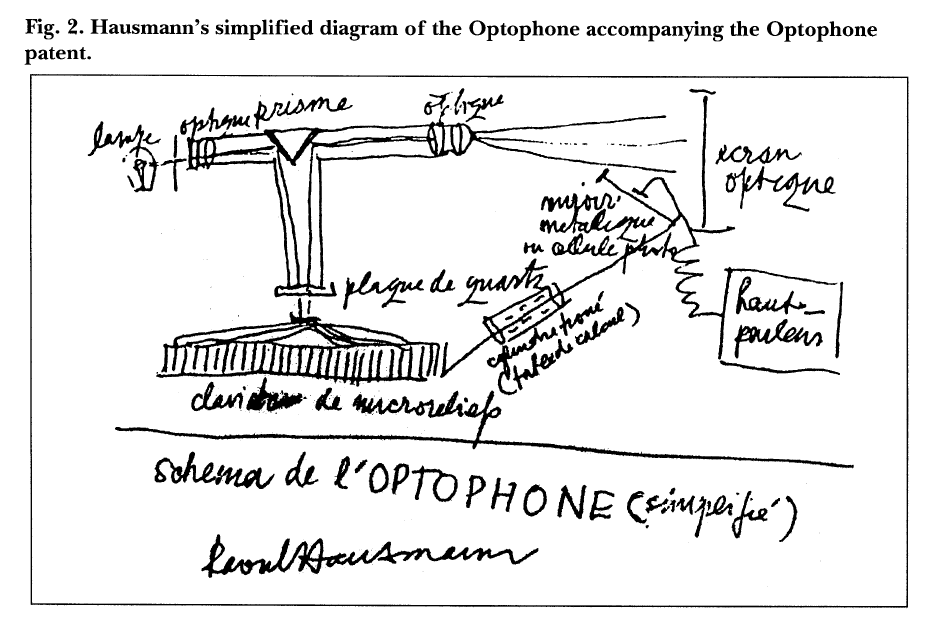 Fig. 2. Hausmann's simplified diagram of the Optophone accompanying the Optophone
patent.
lampe
optique
prisme
optique
ecran
optique
miroir
metallique
ou cellule photo
plaque de quartz
cylindre troué
haut-
parleurs
de microreliefs
schema de l'OPTOPHONE (simplifié)
Raoul Hausmann